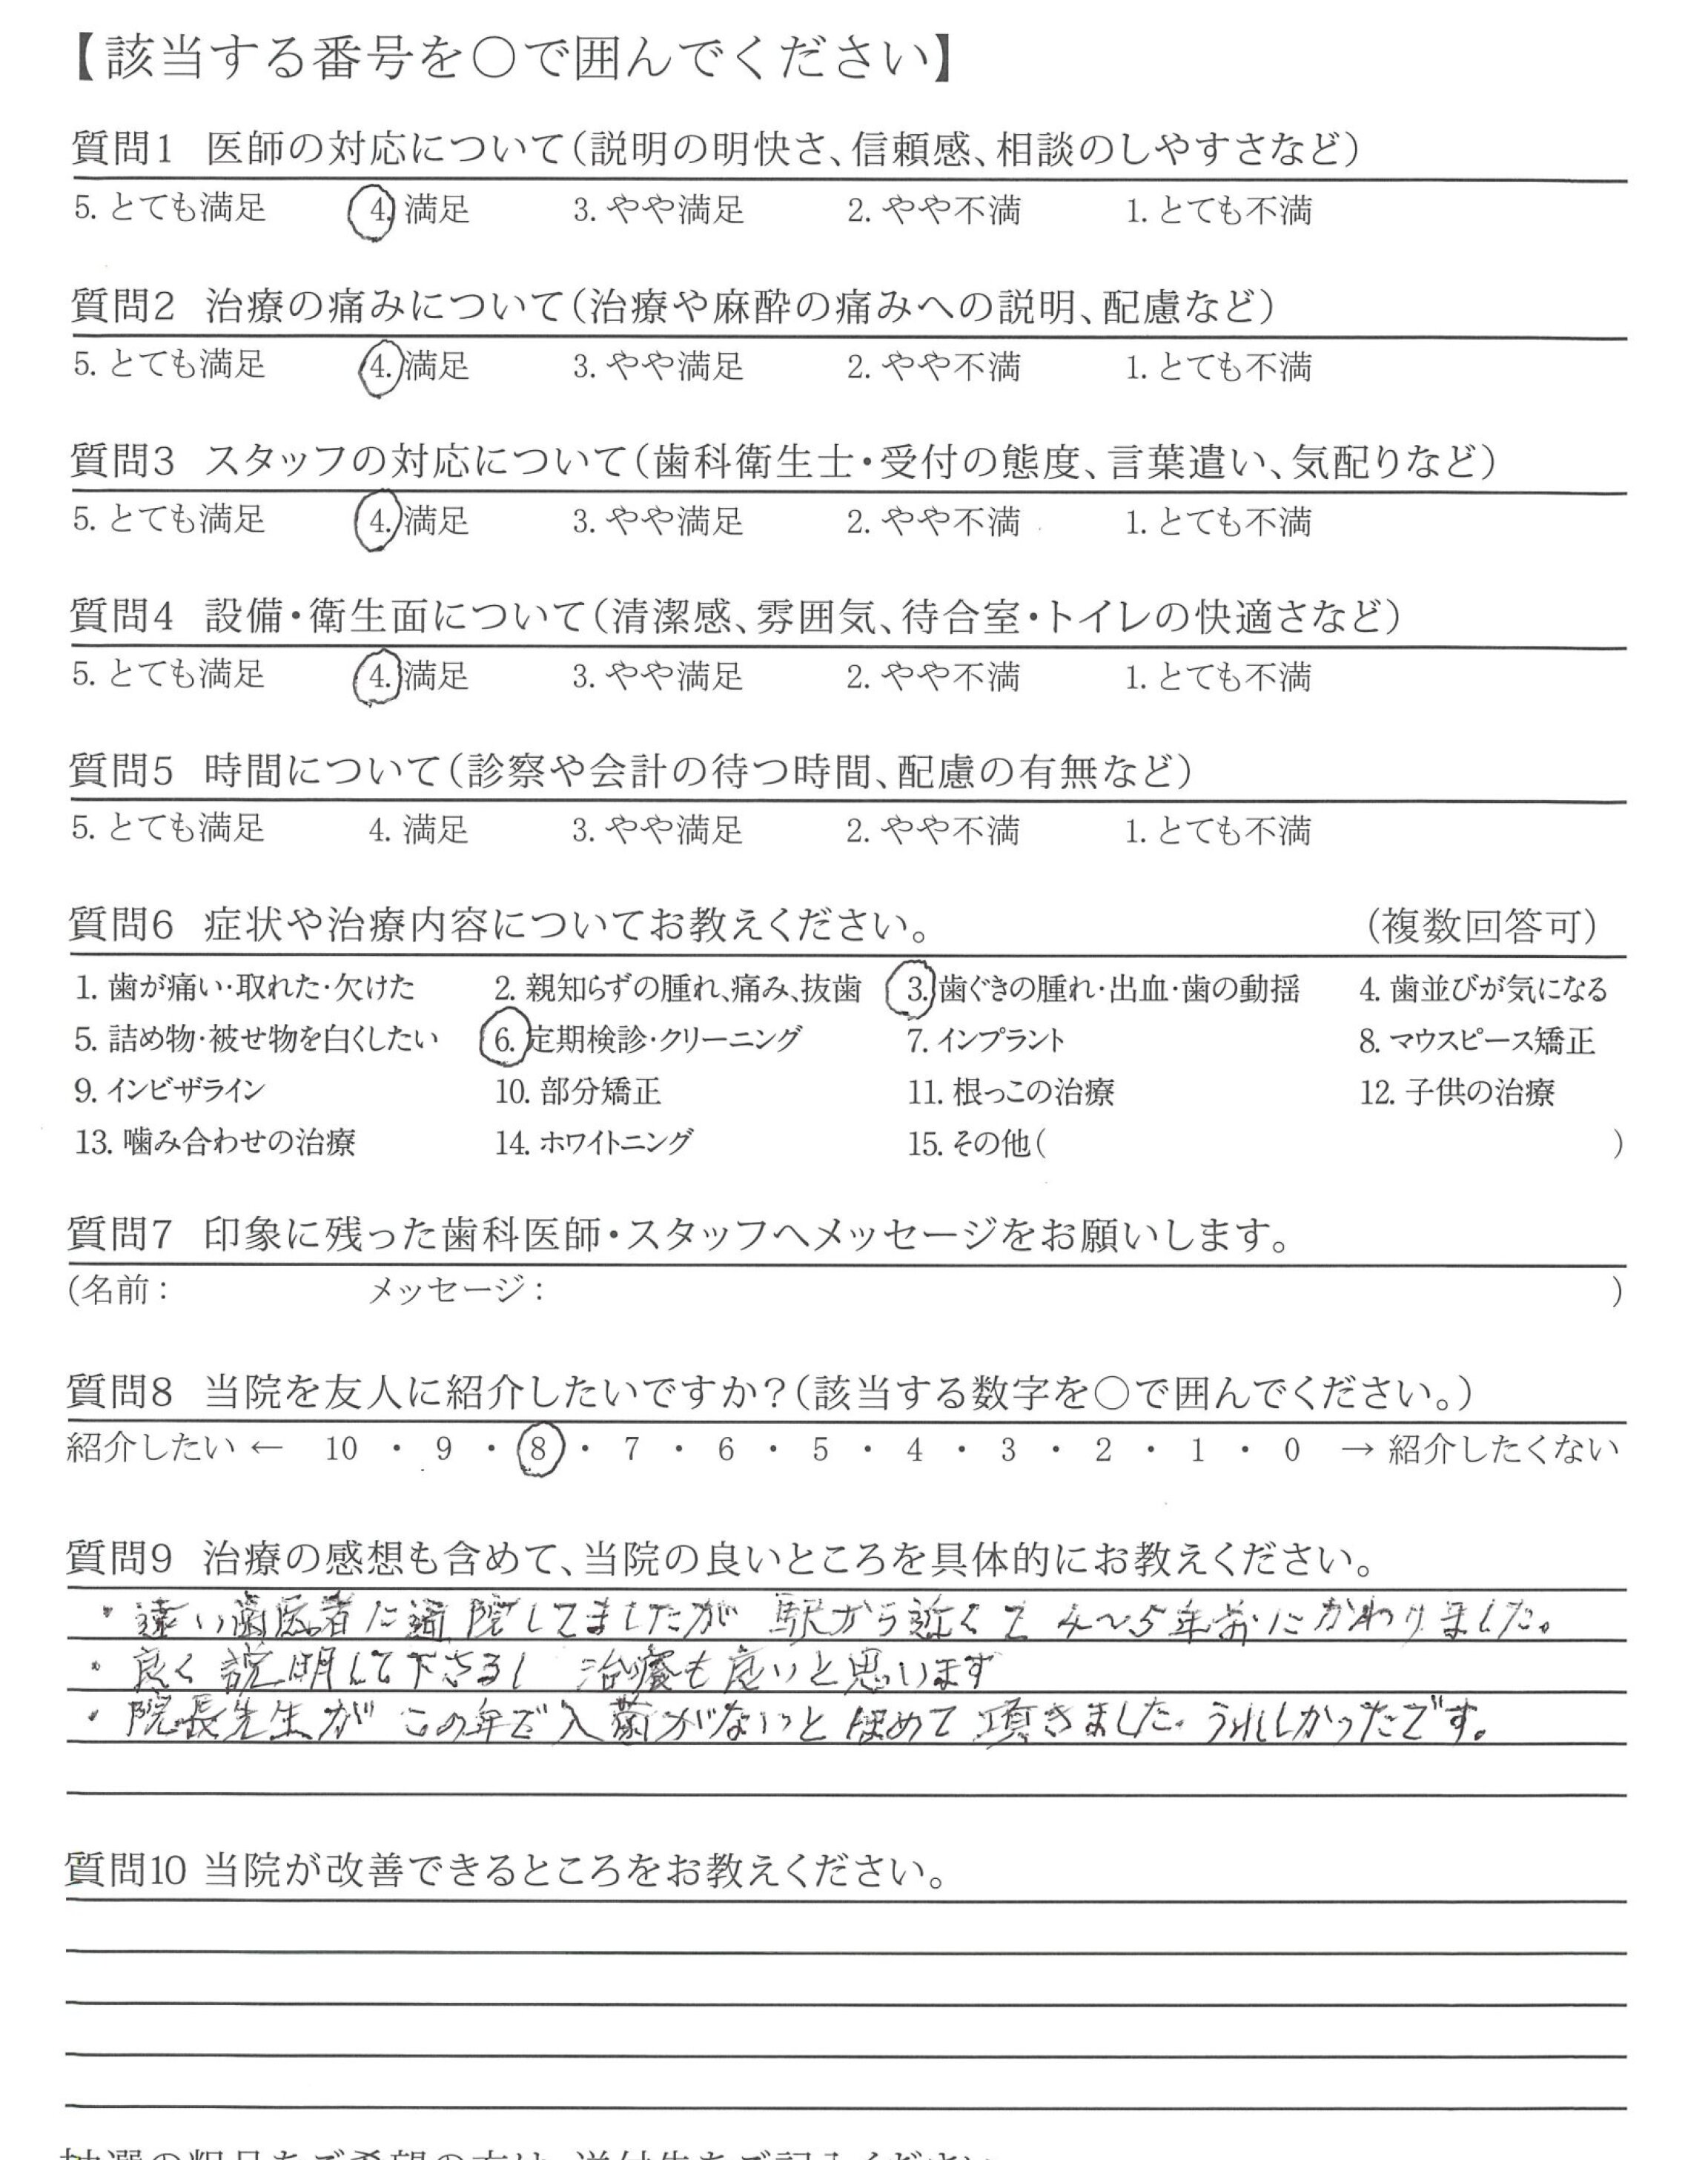 【該当する番号を○で囲んでください】
質問1 医師の対応について(説明の明快さ、信頼感、相談のしやすさなど)
5. とても満足 4. 満足 3. やや満足 2. やや不満 1. とても不満
質問2 治療の痛みについて(治療や麻酔の痛みへの説明、配慮など)
5. とても満足 4. 満足 3. やや満足 2. やや不満 1. とても不満
質問3 スタッフの対応について(歯科衛生士・受付の態度、言葉遣い、気配りなど)
5. とても満足 4. 満足 3. やや満足 2. やや不満 1. とても不満
質問4 設備・衛生面について(清潔感、雰囲気、待合室・トイレの快適さなど)
5. とても満足 4. 満足 3. やや満足 2. やや不満 1. とても不満
質問5 時間について(診察や会計の待つ時間、配慮の有無など)
5. とても満足 4. 満足 3. やや満足 2. やや不満 1. とても不満
質問6 症状や治療内容についてお教えください。 (複数回答可)
1. 歯が痛い・取れた・欠けた 2. 親知らずの腫れ、痛み、抜歯 3. 歯ぐきの腫れ・出血・歯の動揺 4. 歯並びが気になる
5. 詰め物・被せ物を白くしたい 6. 定期検診・クリーニング 7. インプラント 8. マウスピース矯正
9. インビザライン 10. 部分矯正 11. 根っこの治療 12. 子供の治療
13. 噛み合わせの治療 14. ホワイトニング 15. その他( )
質問7 印象に残った歯科医師・スタッフへメッセージをお願いします。
(名前: メッセージ: )
質問8 当院を友人に紹介したいですか?(該当する数字を○で囲んでください。)
紹介したい ← 10 ・ 9 ・ 8 ・ 7 ・ 6 ・ 5 ・ 4 ・ 3 ・ 2 ・ 1 ・ 0 → 紹介したくない
質問9 治療の感想も含めて、当院の良いところを具体的にお教えください。
・遠い歯医者に通院してましたが 駅から近くて 4〜5年前にかわりました。
・良く説明して下さるし 治療も良いと思います
・院長先生が この年で入歯がないっと ほめて頂きました。うれしかったです。
質問10 当院が改善できるところをお教えください。
抽選の粗品をご希望の方は、送付先をご記入ください